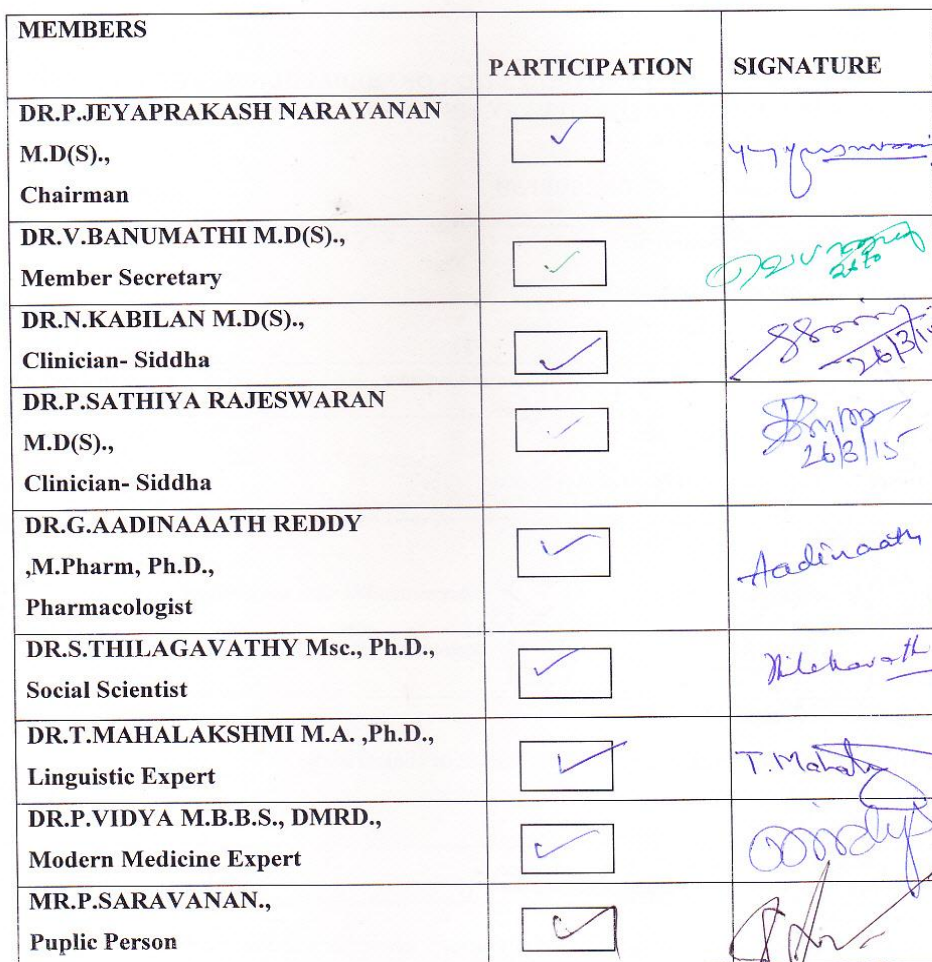 MEMBERS
PARTICIPATION SIGNATURE
DR.P.JEYAPRAKASH NARAYANAN
M.D(S).,
Chairman
DR.V.BANUMATHI M.D(S).,
Member Secretary
DR.N.KABILAN M.D(S).,
Clinician- Siddha
26/3/15
DR.P.SATHIYA RAJESWARAN
M.D(S).,
Clinician- Siddha
26/3/15
DR.G.AADINAAATH REDDY
,M.Pharm, Ph.D.,
Pharmacologist
Aadinaath
DR.S.THILAGAVATHY Msc., Ph.D.,
Social Scientist
DR.T.MAHALAKSHMI M.A. ,Ph.D.,
Linguistic Expert
DR.P.VIDYA M.B.B.S., DMRD.,
Modern Medicine Expert
MR.P.SARAVANAN.,
Puplic Person